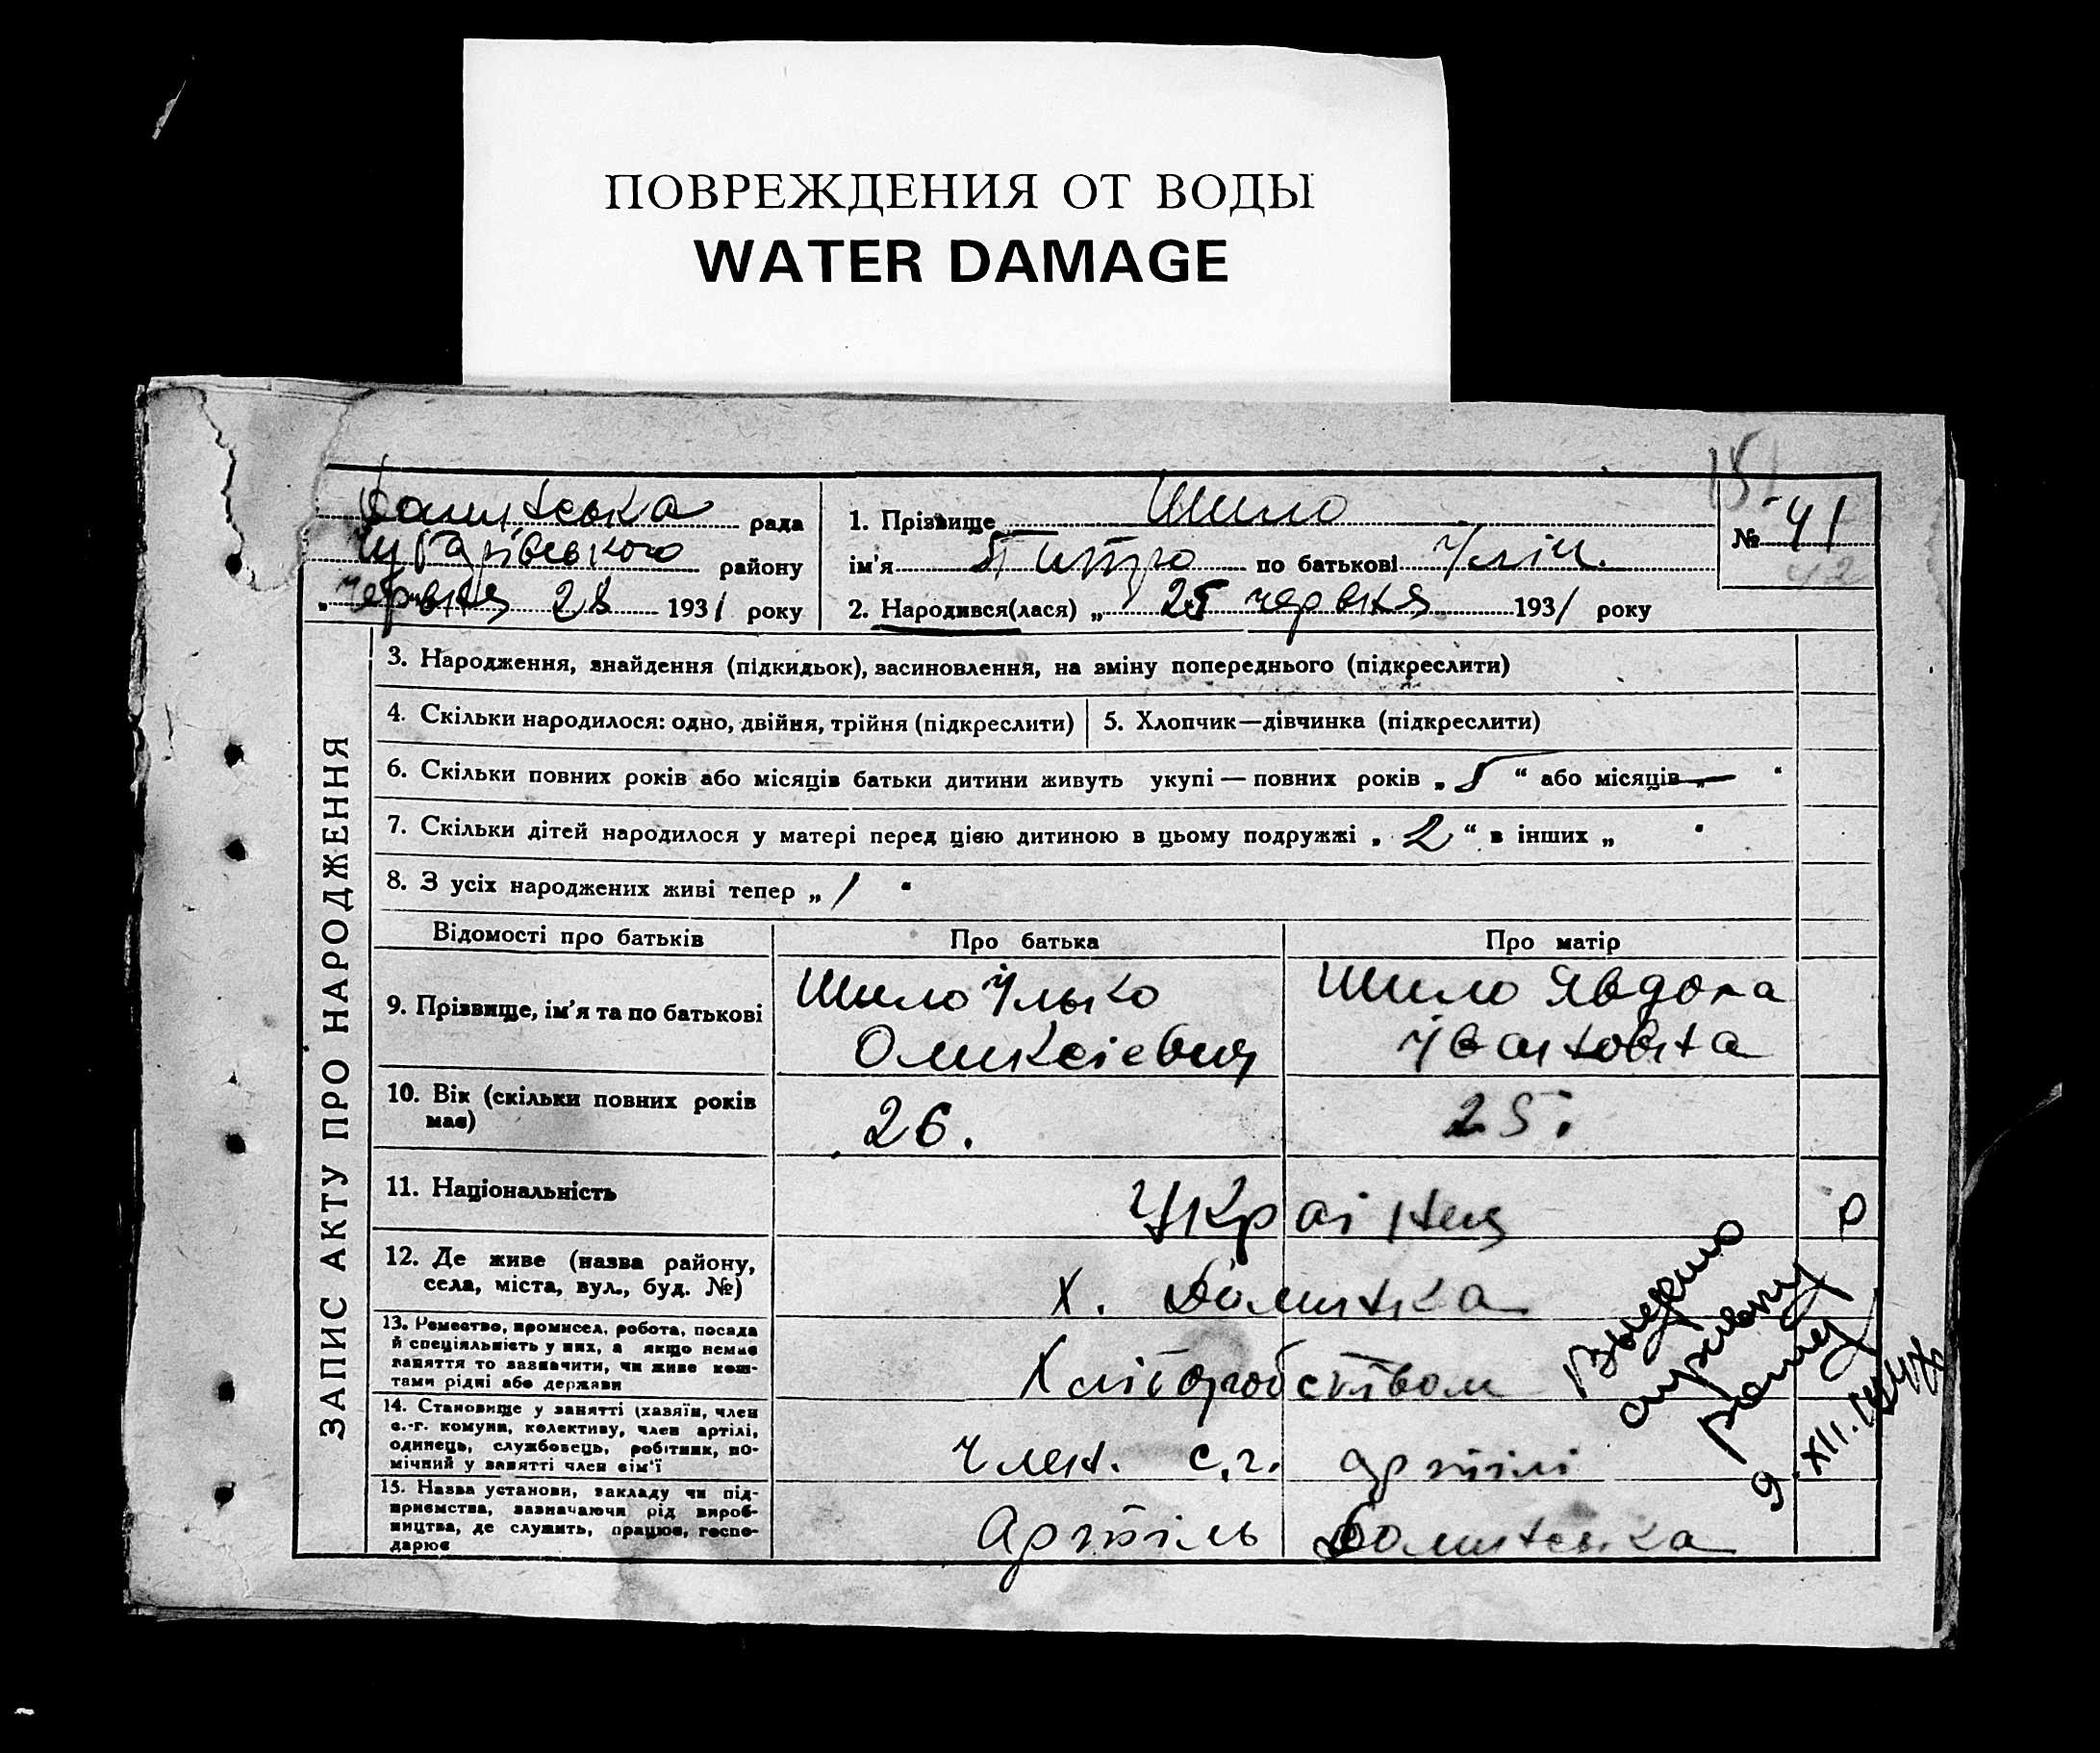 ПОВРЕЖДЕНИЯ ОТ ВОДЫ
WATER DAMAGE
151
рада
району
червня 28 1931 року
1. Прізвище Шило
ім'я Питро по батькові Ілін.
2. Народився(лася) „ 25 червня 1931 року
№ 41
42
ЗАПИС АКТУ ПРО НАРОДЖЕННЯ
3. Народження, знайдення (підкидьок), засиновлення, на зміну попереднього (підкреслити)
4. Скільки народилося: одно, двійня, трійня (підкреслити)
5. Хлопчик—дівчинка (підкреслити)
6. Скільки повних років або місяців батьки дитини живуть укупі — повних років „ 5 “ або місяців „ — “
7. Скільки дітей народилося у матері перед цією дитиною в цьому подружжі „ 2 “ в інших „ “
8. З усіх народжених живі тепер „ 1 “
Відомості про батьків Про батька Про матір
9. Прізвище, ім'я та по батькові
Шило Ілько
Оликсієвич
Шило Явдоха
Івановна
10. Вік (скільки повних років
має)
26.
25.
11. Національність
Українец
12. Де живе (назва району,
села, міста, вул., буд. №)
х.
13. Ремество, промисел, робота, посада
й спеціяльність у них, а якщо немає
заняття то зазначити, чи живе кош-
тами рідні або держави
Хліборобством
14. Становище у занятті (хазяїн, член
с.-г. комуни, колективу, член артілі,
одинець, службовець, робітник, по-
мічний у занятті член сім'ї
Член. с.г. артілі
15. Назва установи, закладу чи під-
приємства, зазначаючи рід вироб-
ництва, де служить, працює, госпо-
дарює
Артіль
Выдано
справку
9.XII.